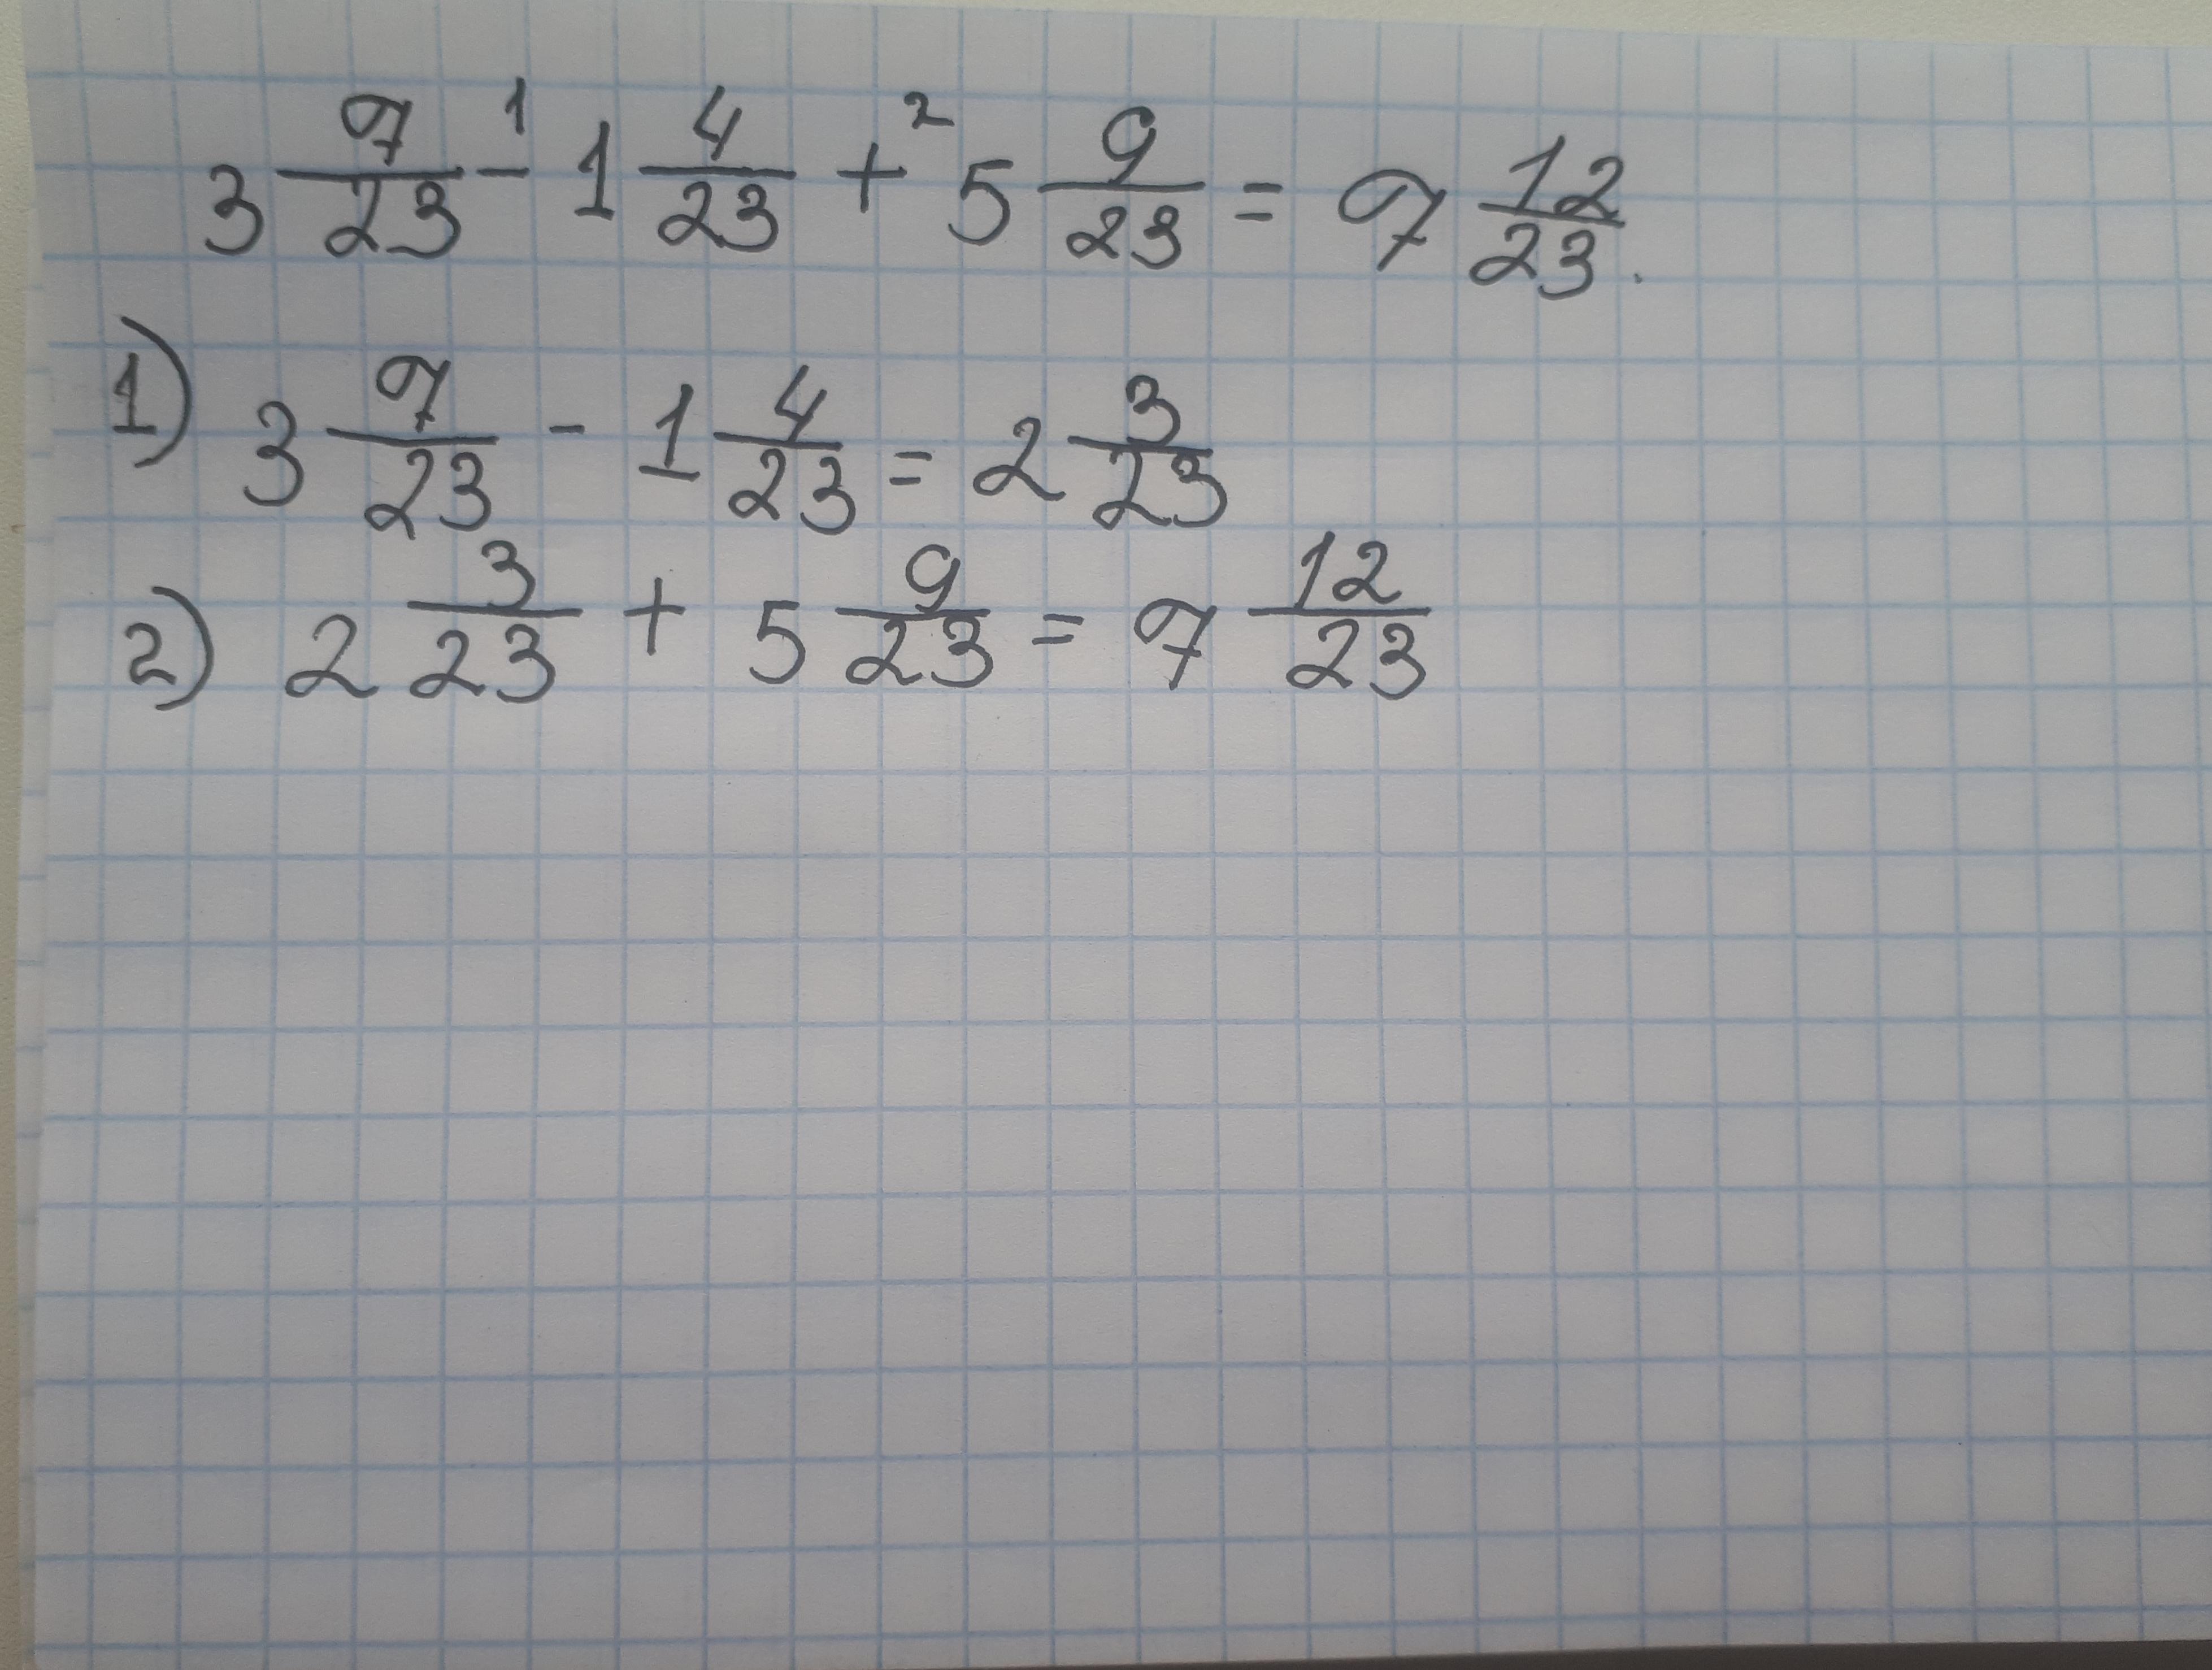 3 7/23 -¹ 1 4/23 +² 5 9/23 = 7 12/23.
1) 3 7/23 - 1 4/23 = 2 3/23
2) 2 3/23 + 5 9/23 = 7 12/23